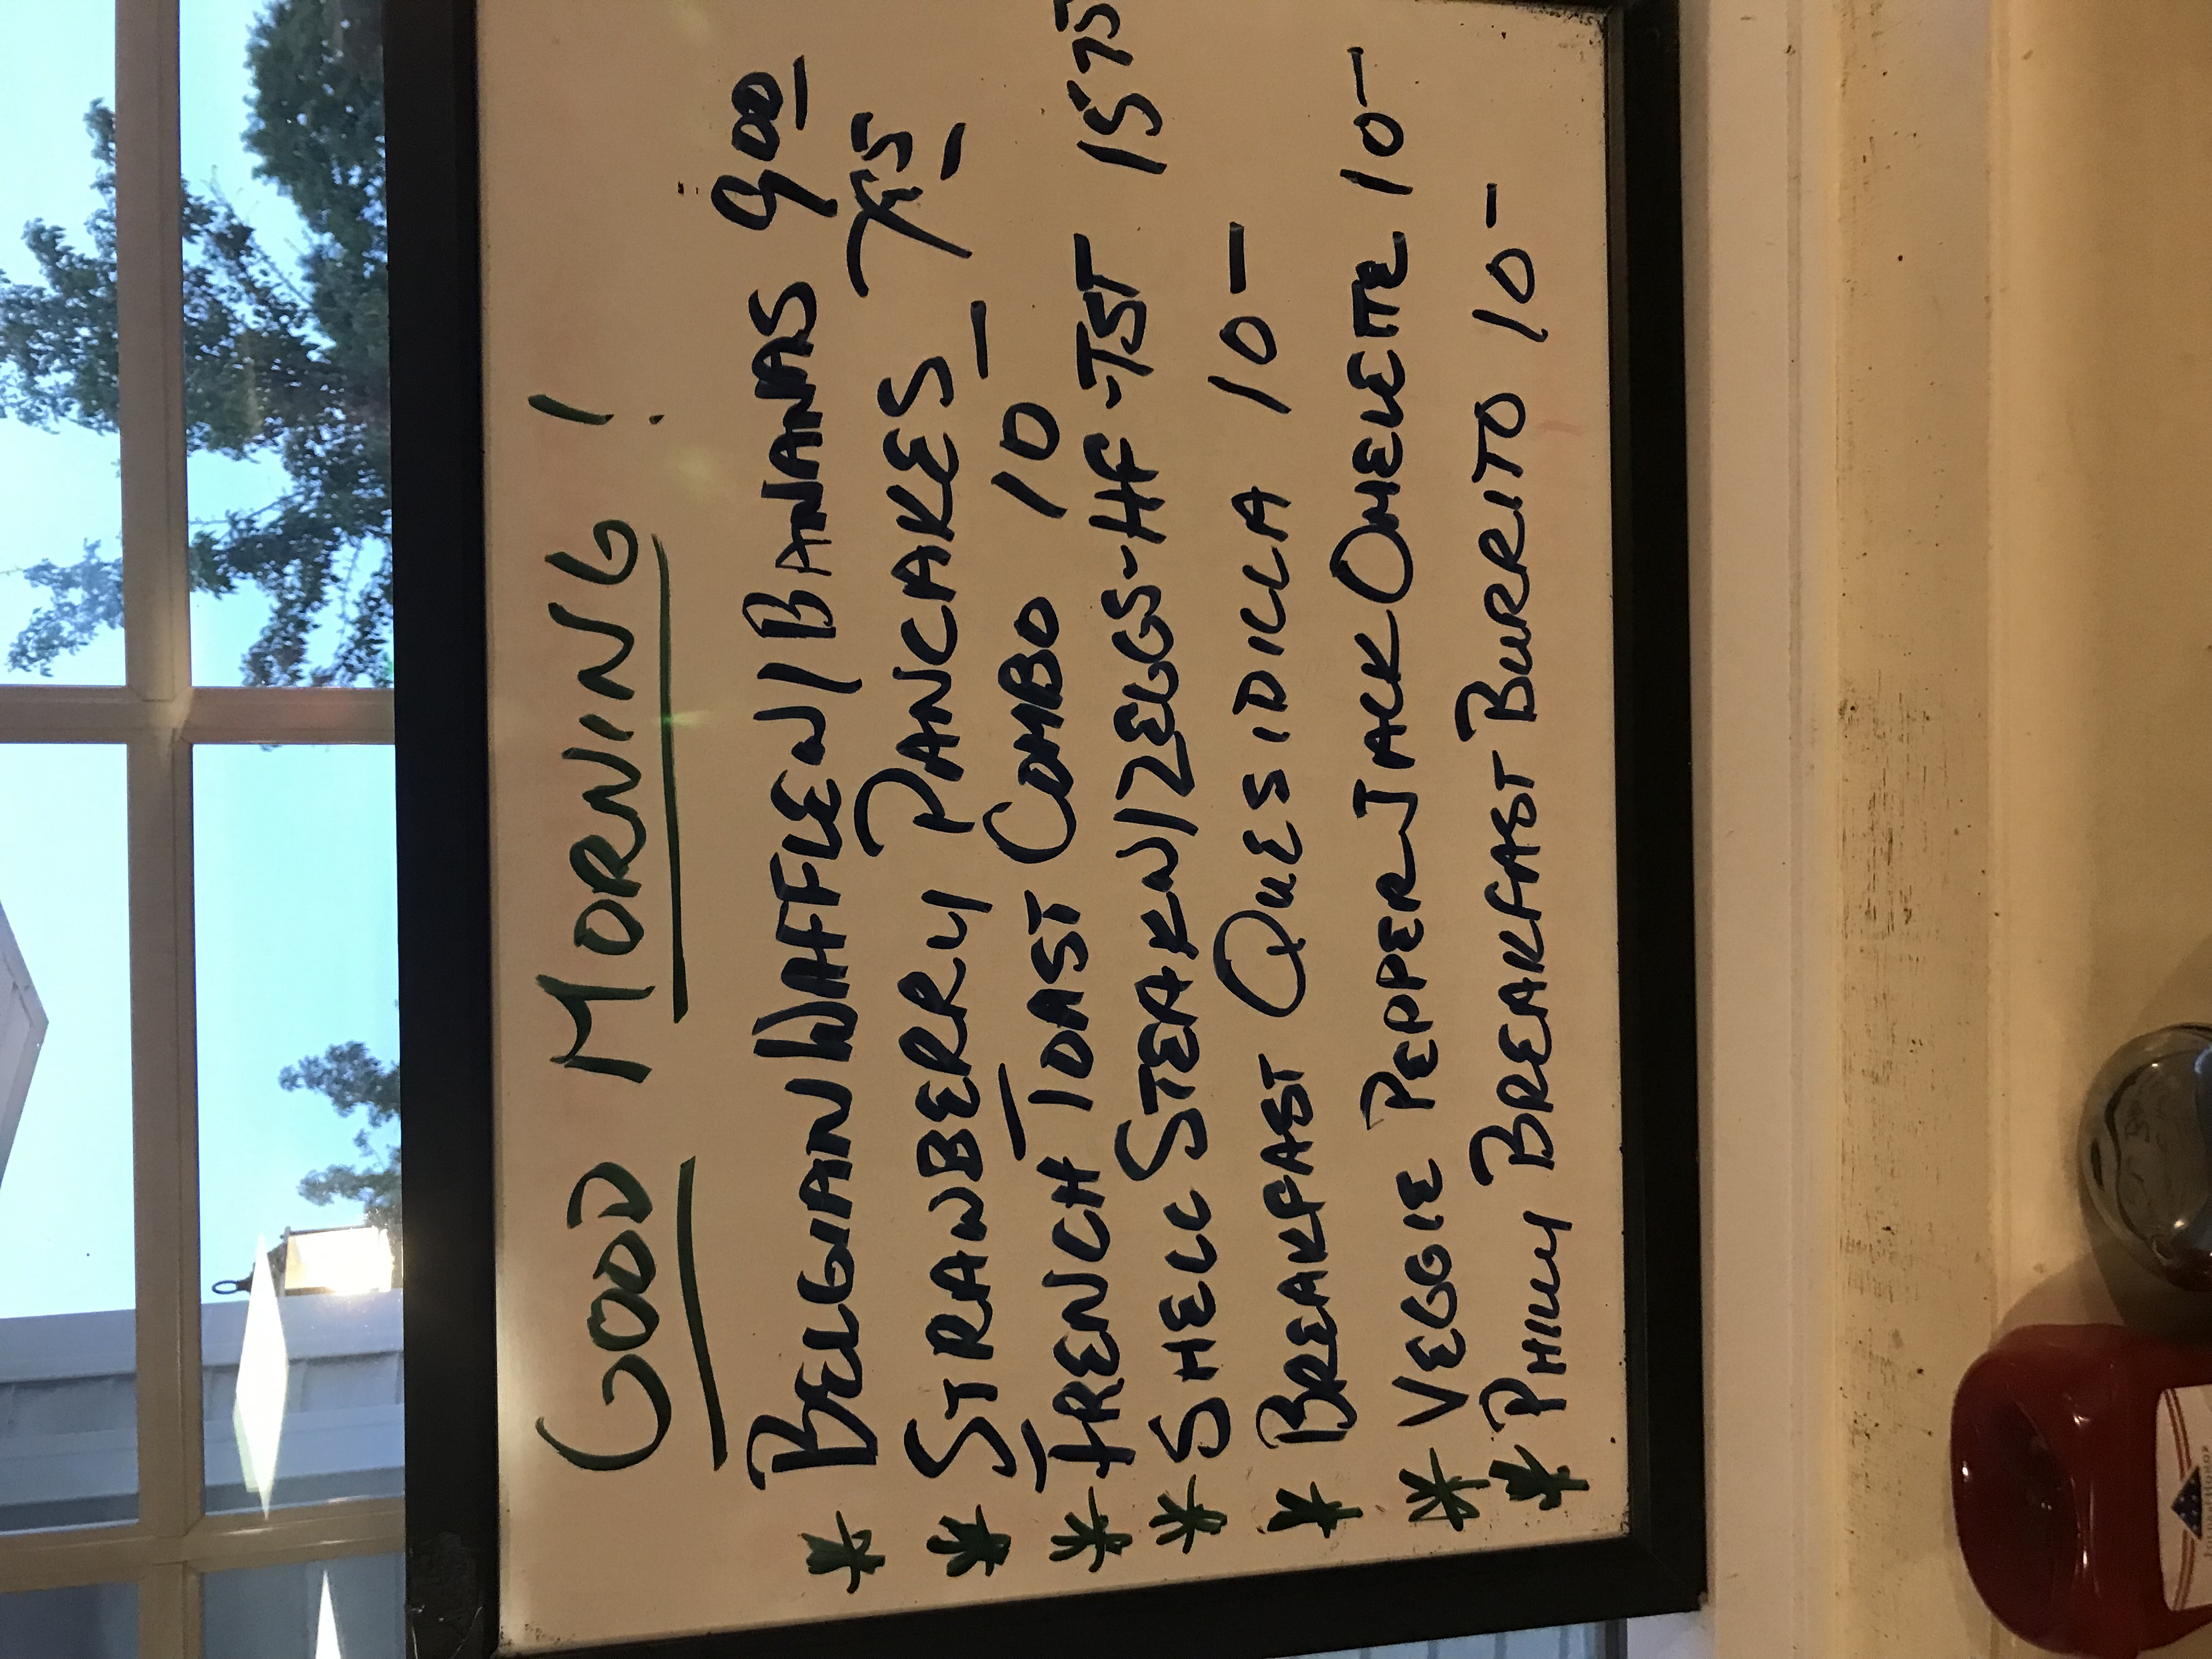 GOOD MORNING!
* BELGIAN WAFFLE W/ BANANAS 900
* STRAWBERRY PANCAKES 7.75
* FRENCH TOAST COMBO 10 -
* SHELL STEAK W/ 2 EGGS-HF-TST 15 75
* BREAKFAST QUESIDILLA 10 -
* VEGGIE PEPPER JACK OMELETTE 10 -
* PHILLY BREAKFAST BURRITO 10 -